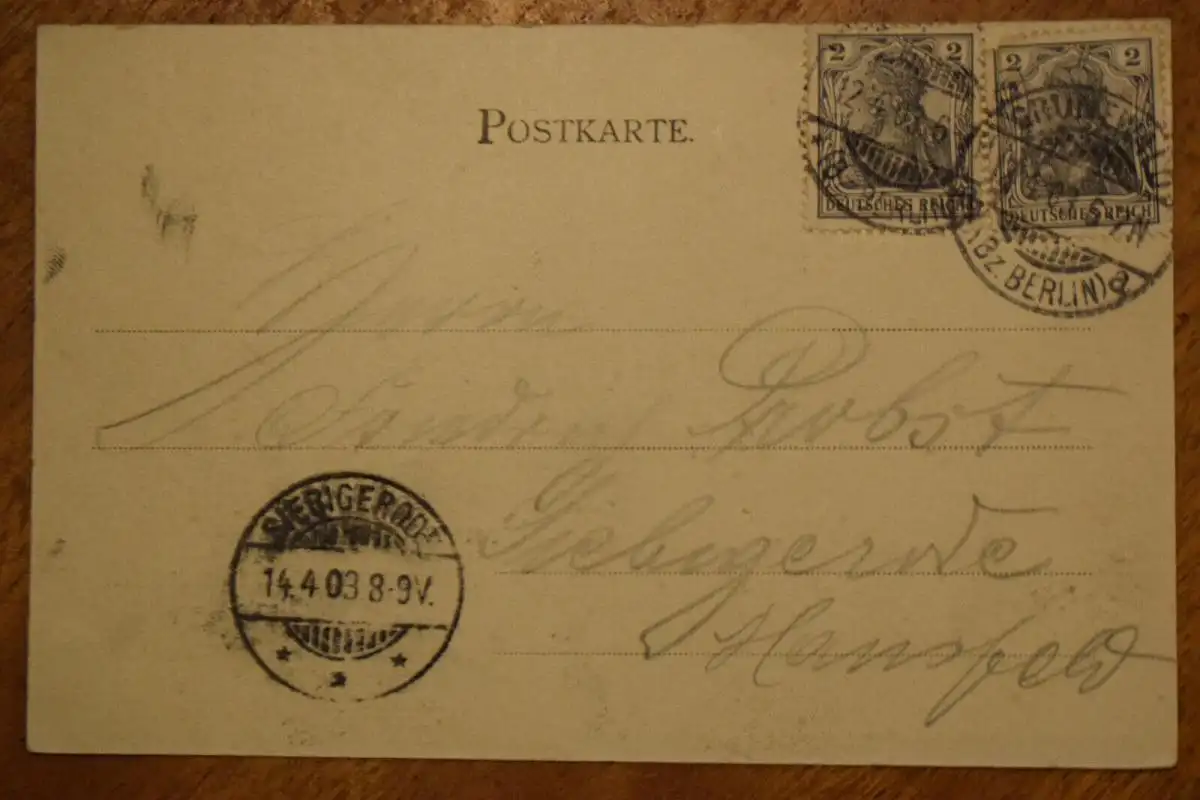 2 2
DEUTSCHES REICH
2 2
DEUTSCHES REICH
(BZ. BERLIN) a
POSTKARTE.
Herrn
Probst
Siebigerode
Mansfeld
SIEBIGERODE
14.4 03 8-9V.